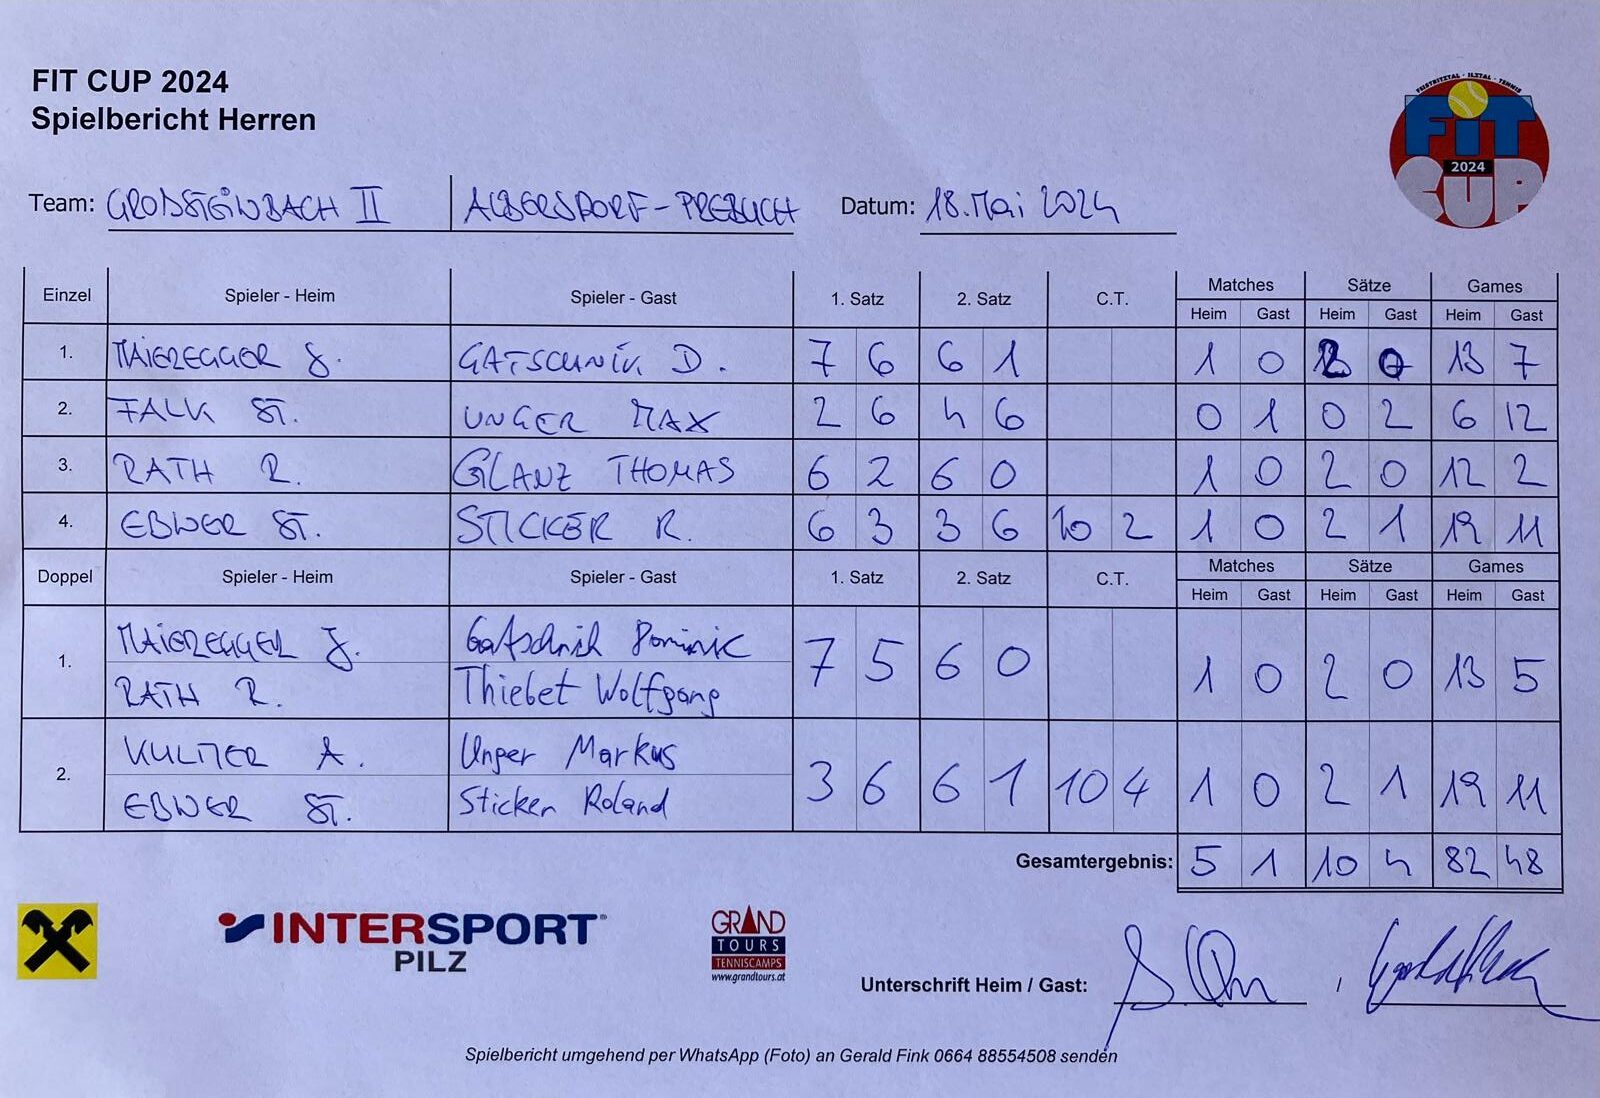 FIT CUP 2024
Spielbericht Herren
FEISTRITZTAL - ILZTAL - TENNIS
FiT
2024
CUP
Team: GROßSTEINBACH II ALBERSDORF-PREBUCH Datum: 18. Mai 2024
Einzel Spieler - Heim Spieler - Gast 1. Satz 2. Satz C.T. Matches Sätze Games
Heim Gast Heim Gast Heim Gast
1. MAIEREGGER J. GATSCHNIK D. 7 6 6 1 1 0 2 0 13 7
2. FALK ST. UNGER MAX 2 6 4 6 0 1 0 2 6 12
3. RATH R. GLANZ THOMAS 6 2 6 0 1 0 2 0 12 2
4. EBNER ST. STICKER R. 6 3 3 6 10 2 1 0 2 1 19 11
Doppel Spieler - Heim Spieler - Gast 1. Satz 2. Satz C.T. Matches Sätze Games
Heim Gast Heim Gast Heim Gast
MAIEREGGER J. Gatschnik Dominic
1. 7 5 6 0 1 0 2 0 13 5
RATH R. Thiebet Wolfgang
KULMER A. Unger Markus
2. 3 6 6 1 10 4 1 0 2 1 19 11
EBNER ST. Sticker Roland
Gesamtergebnis: 5 1 10 4 82 48
INTERSPORT
PILZ
GRAND
TOURS
TENNISCAMPS
www.grandtours.at
Unterschrift Heim / Gast: ,
Spielbericht umgehend per WhatsApp (Foto) an Gerald Fink 0664 88554508 senden